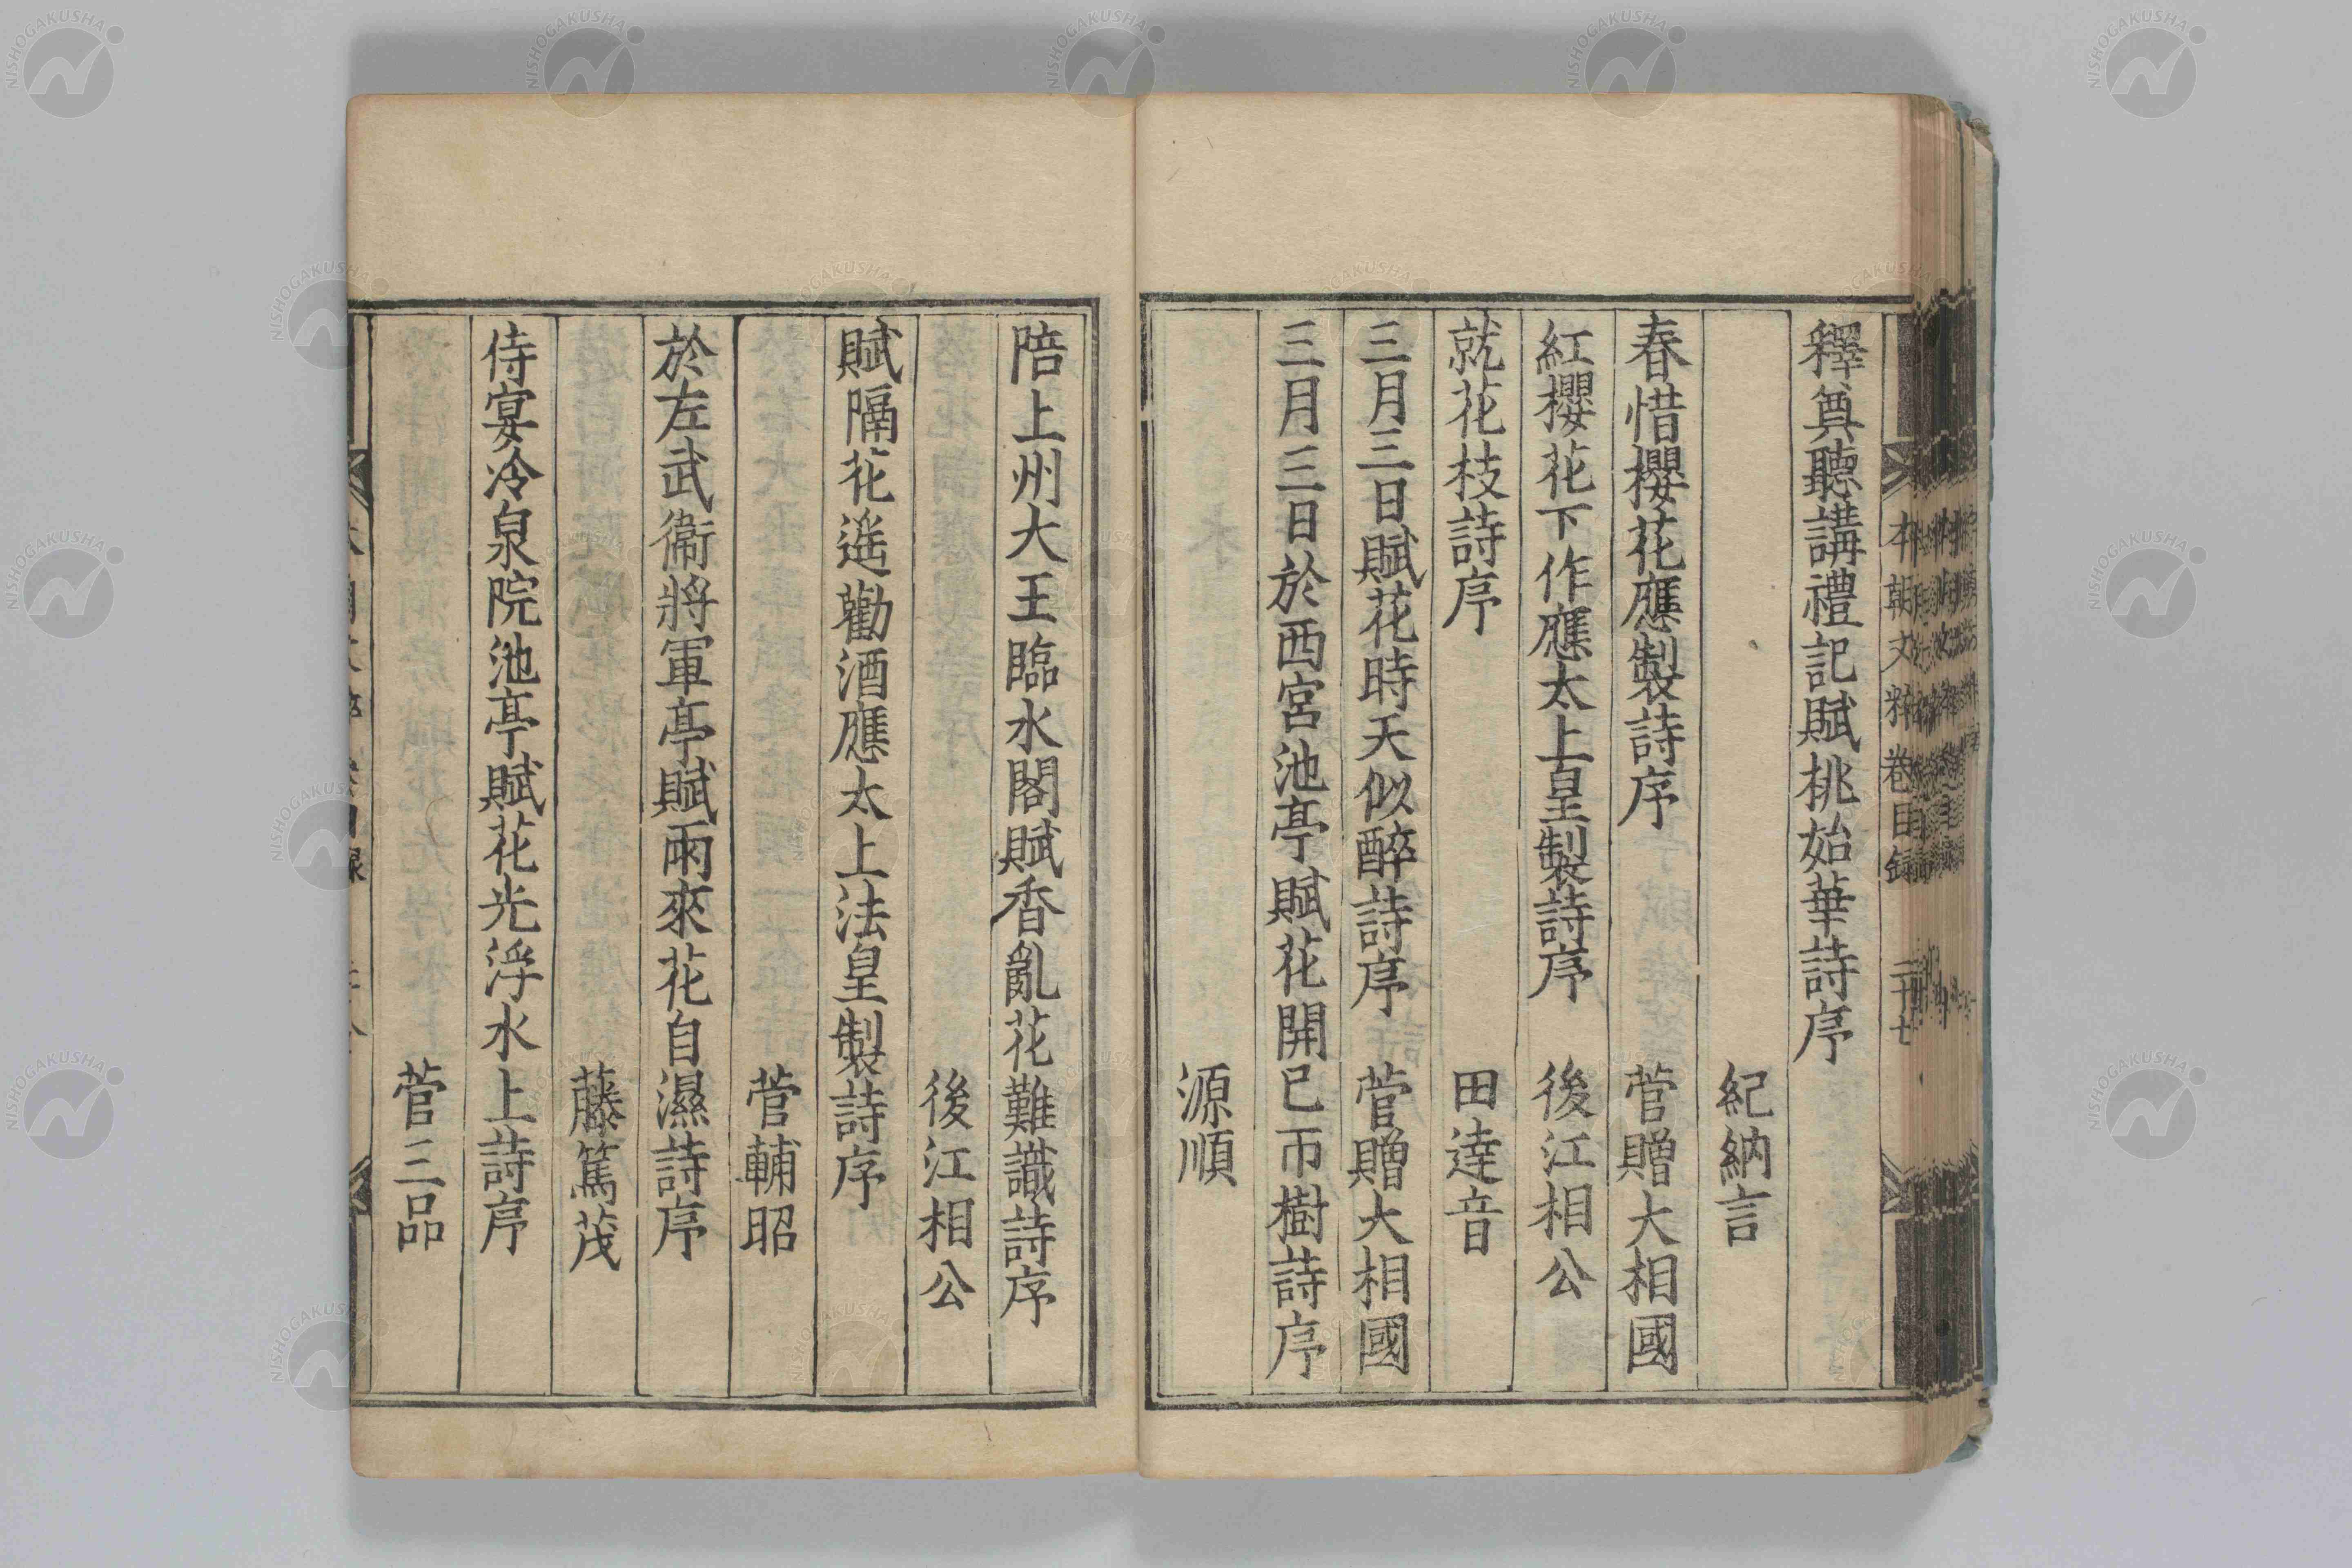 釋奠聽講禮記賦桃始華詩序
紀納言
春惜櫻花應製詩序 菅贈大相國
紅櫻花下作應太上皇製詩序 後江相公
就花枝詩序 田達音
三月三日賦花時天似醉詩序 菅贈大相國
三月三日於西宮池亭賦花開已帀樹詩序
源順
陪上州大王臨水閣賦香亂花難識詩序
後江相公
賦隔花遙勸酒應太上法皇製詩序
菅輔昭
於左武衞將軍亭賦雨來花自濕詩序
藤篤茂
侍宴冷泉院池亭賦花光浮水上詩序
菅三品
本朝文粹卷目錄 二十七
NISHOGAKUSHA